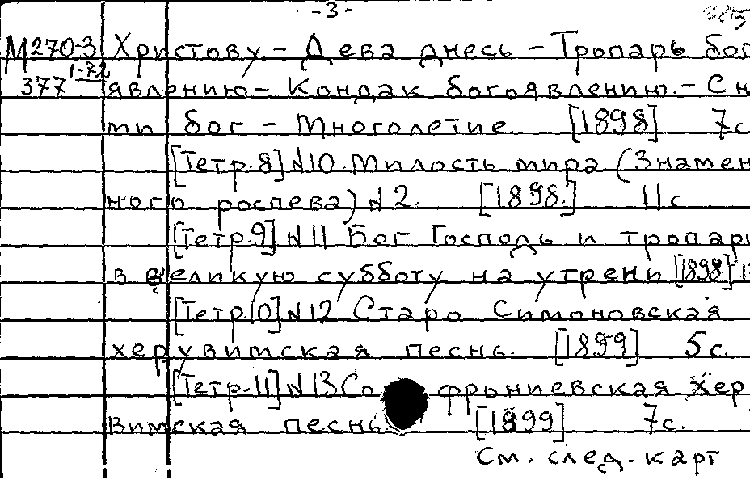 -3-
М270-3 Христову.- Дева днесь - Тропарь бог
377 1-72 явлению- Кондак богоявлению.- С н
ми бог - Многолетие [1898] 7с
[Тетр.8] №10. Милость мира (Знамен
ного роспева) №2. [1898.] 11с
[Тетр.9] №11 Бог Господь и тропари
в великую субботу на утрени [1898]
[Тетр.10] №12 Старо Симоновская
херувимская песнь. [1899] 5с.
[Тетр.11] №13 Со фрониевская Хер
вимская песнь [1899] 7с.
См. след. карт